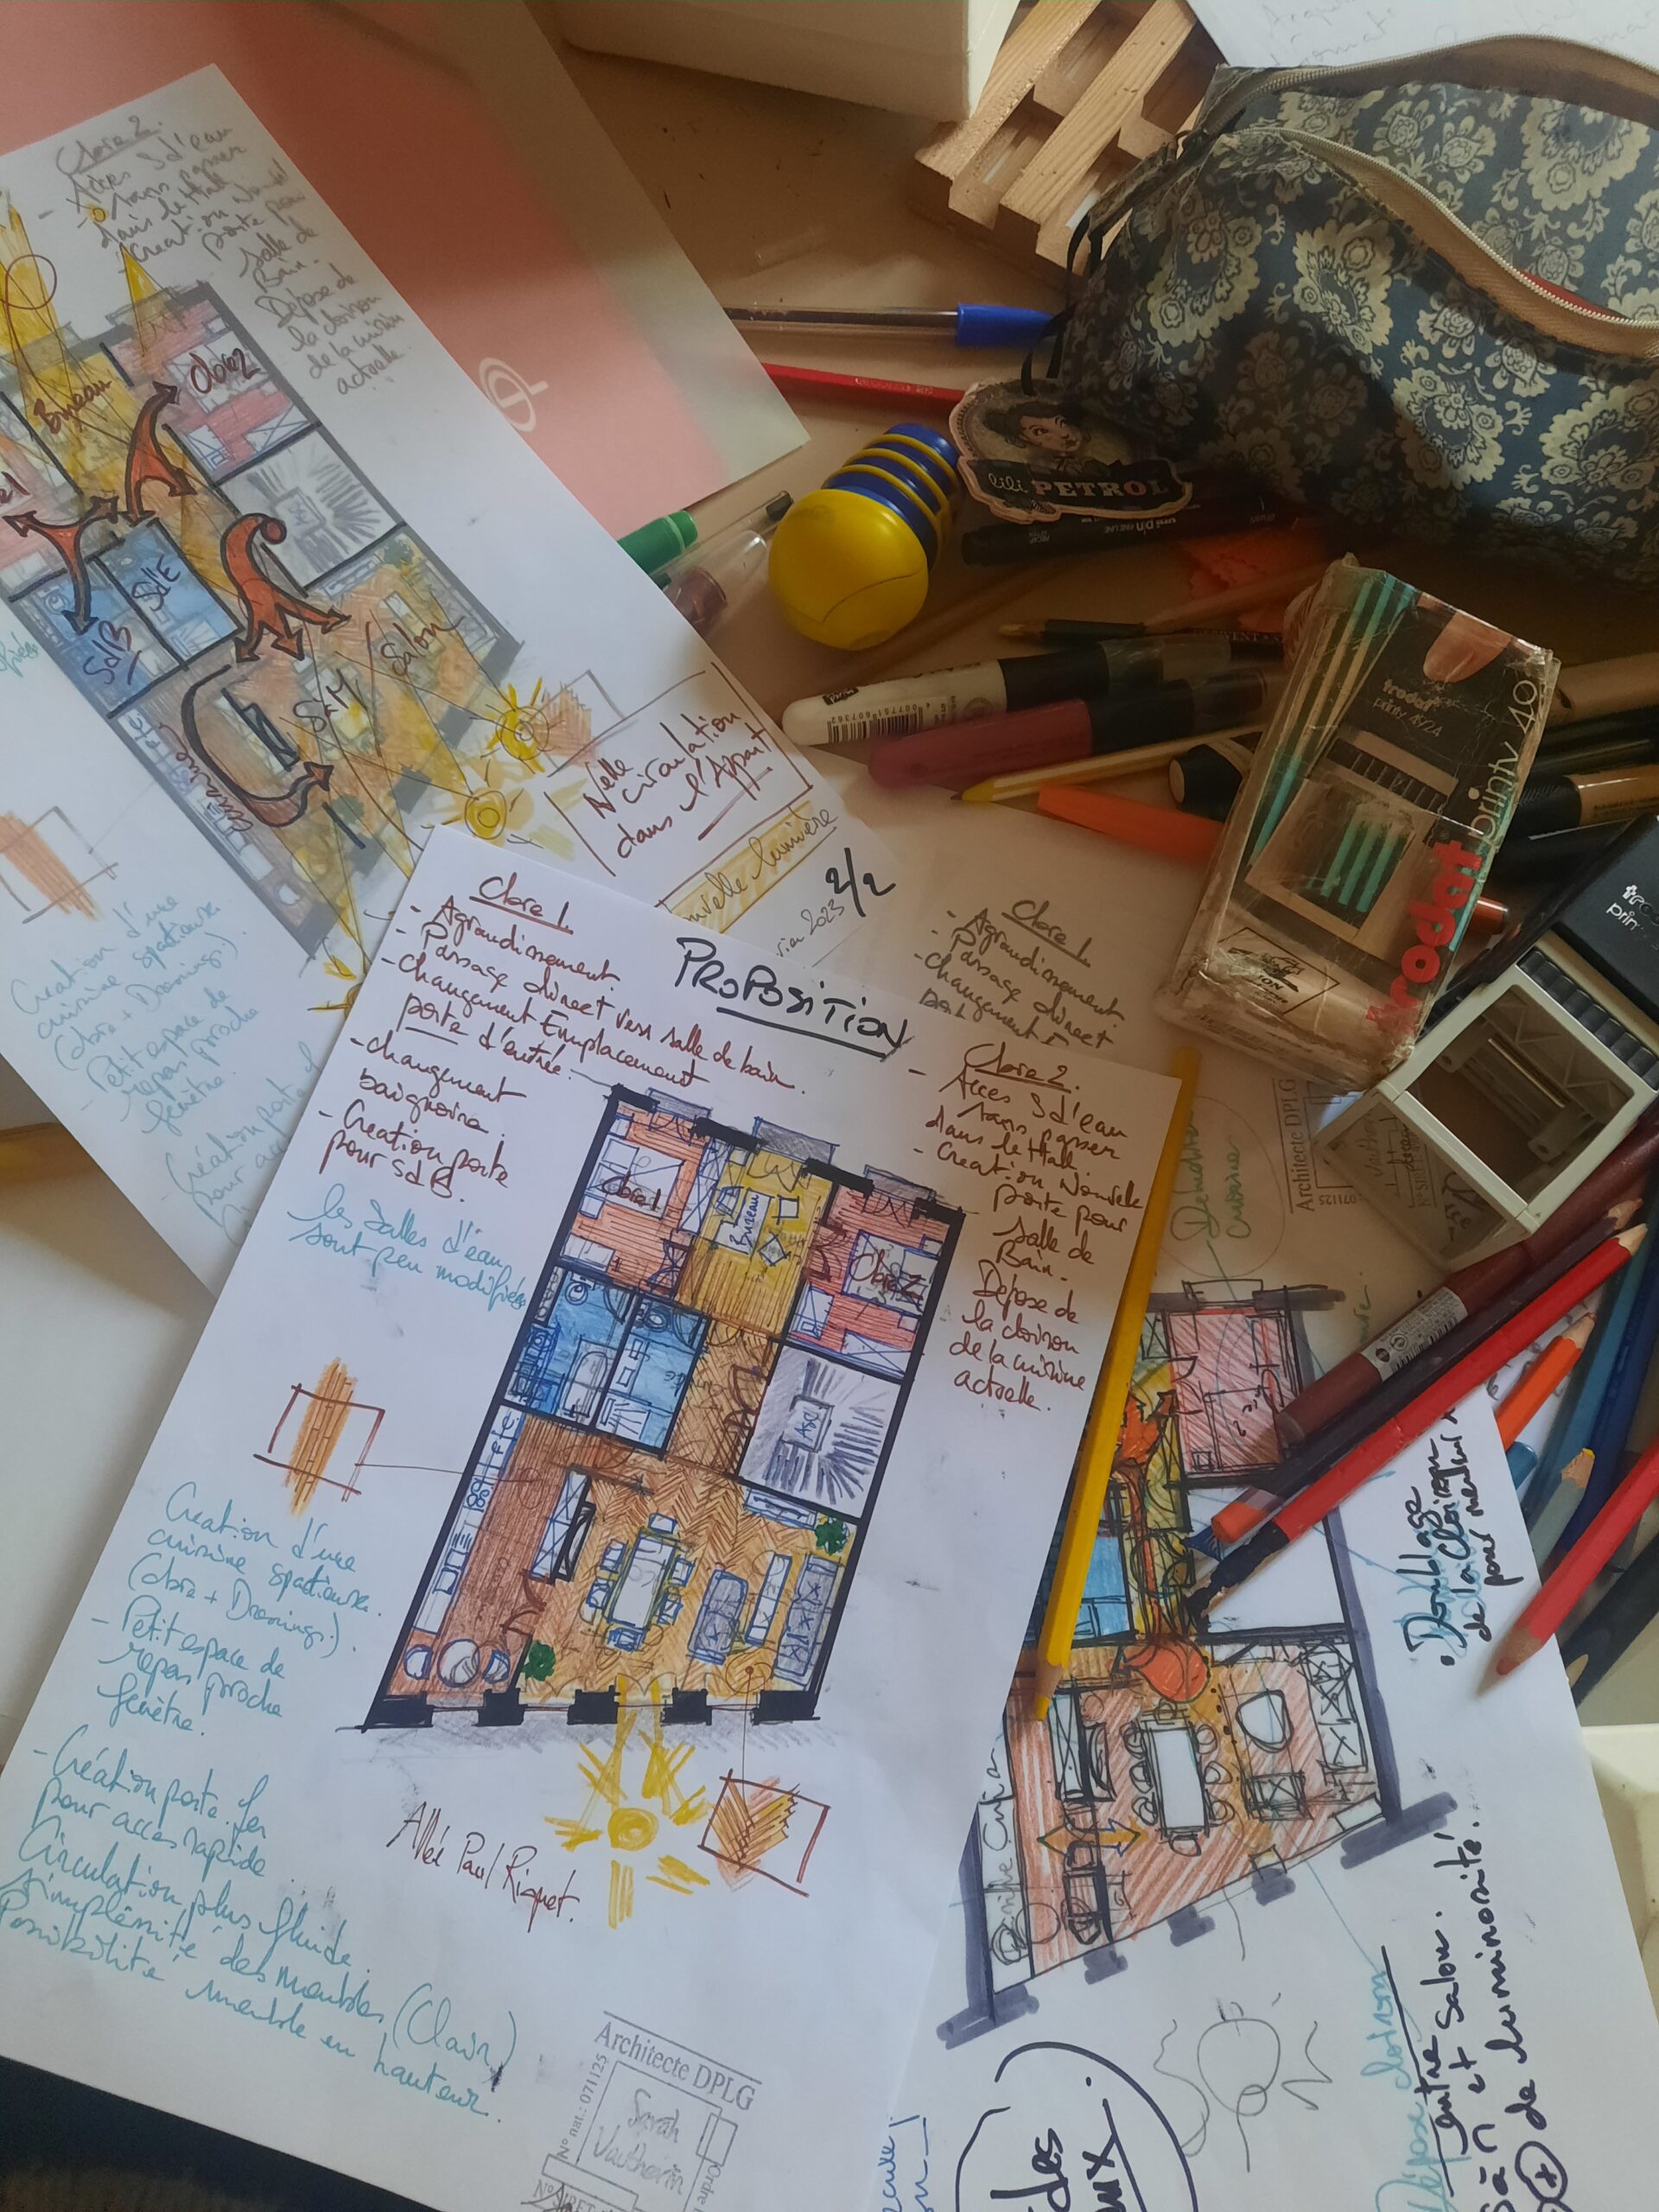 PROPOSITION
Chbre 1.
- Agrandissement.
- Passage direct vers salle de bain.
- Changement Emplacement
porte d'entrée.
- Changement
baignoire.
- Creation porte
pour SdB.
les Salles d'eau
sont peu modifiées
Chbre 2.
- Acces S d'eau
sans passer
dans le Hall.
- Creation Nouvelle
porte pour
Salle de
Bain.
Dépose de
la cloison
de la cuisine
actuelle.
Chbre 1
Bureau
Chbre 2
Asc
Creation d'une
cuisine spatieuse.
(chbre + Dressing).
- Petit espace de
repas proche
fenêtre.
- Création porte
pour acces rapide
Circulation plus fluide.
des meubles (Clair)
Possibilité meuble en hauteur.
Allée Paul Riquet.
Architecte DPLG
N° nat.: 071125
Sarah
Vautherin
Ordre
N° SIRET
Chbre 2.
- Acces S d'eau
sans passer
dans le Hall
- Creation Nouvel
porte pour
Salle de
Bain.
Dépose de
la cloison
de la cuisine
actuelle.
Bureau
Chbre 2
SdB
SdE
SàM / Salon
Cuisine
Nelle
circulation
dans l'Appart
lumière
2/2
2023
Creation d'une
cuisine spatieuse
(chbre + Dressing).
- Petit espace de
repas proche
fenêtre.
- Création porte
pour acc
Chbre 1.
- Agrandissement
- Passage direct
- Changement
Architecte DPLG
071125
cuisine
• Doublage
de la cloison
pour
Dépose cloison
entre
et Salon.
de luminosité.
lili PETROL
uni pin
DERWENT
trodat
printy 4924
trodat printy 4.0